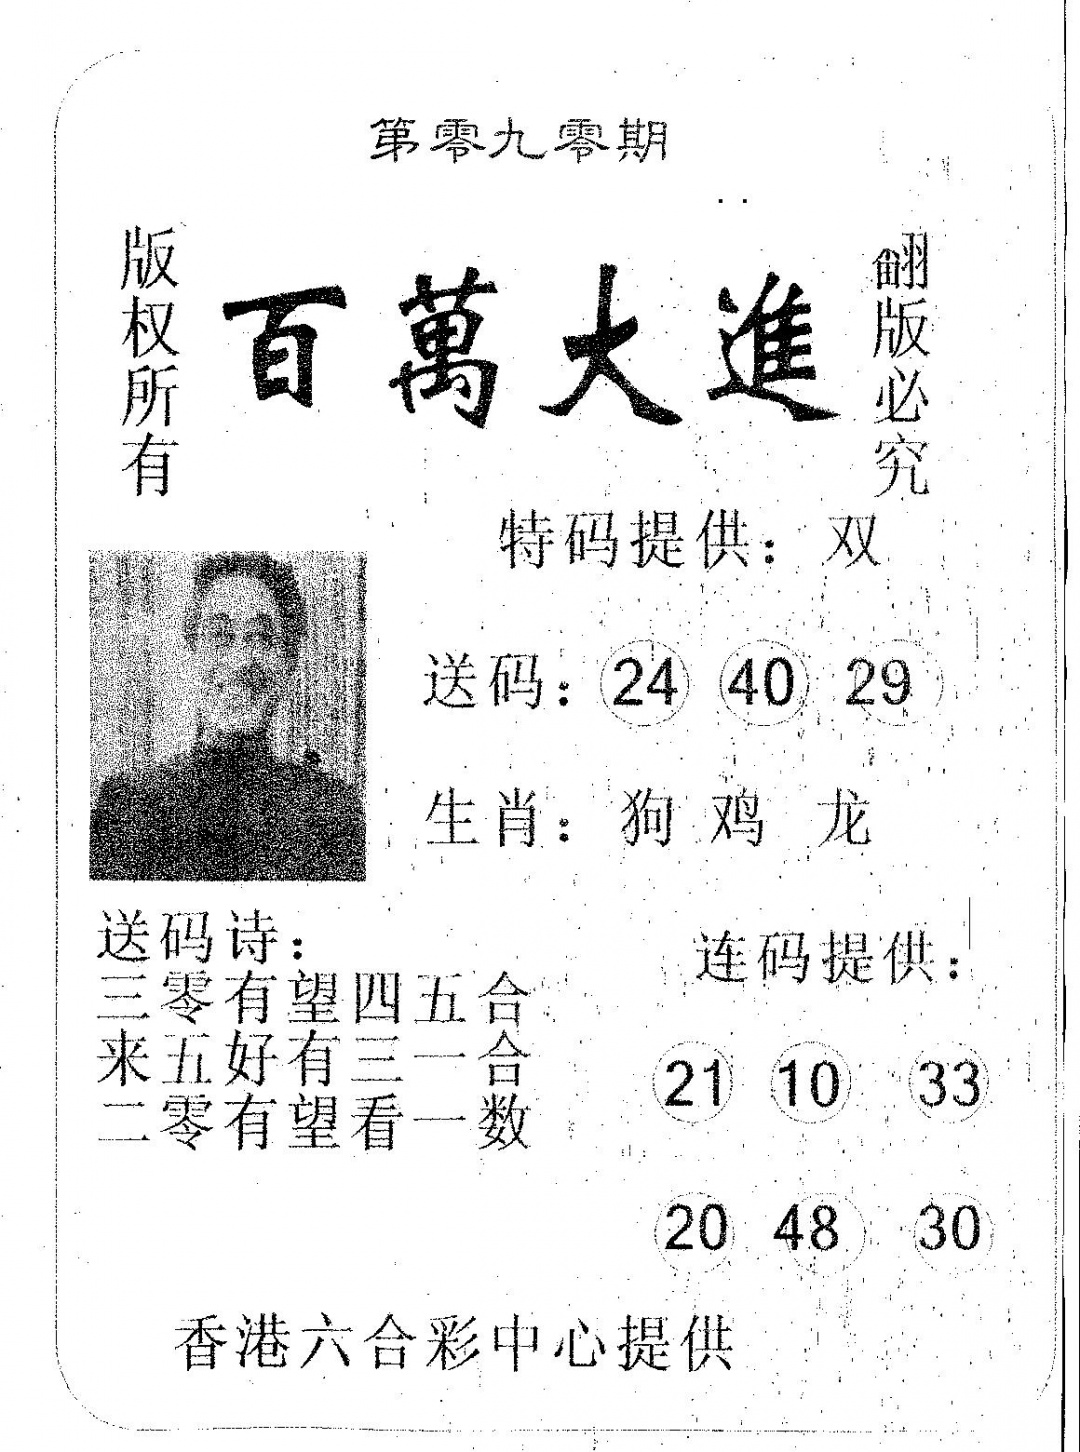 第零九零期
版权所有
百萬大進
翻版必究
特码提供：双
送码：24 40 29
生肖：狗 鸡 龙
送码诗：
三零有望四五合
来五好有三一合
二零有望看一数
连码提供：
21 10 33
20 48 30
香港六合彩中心提供